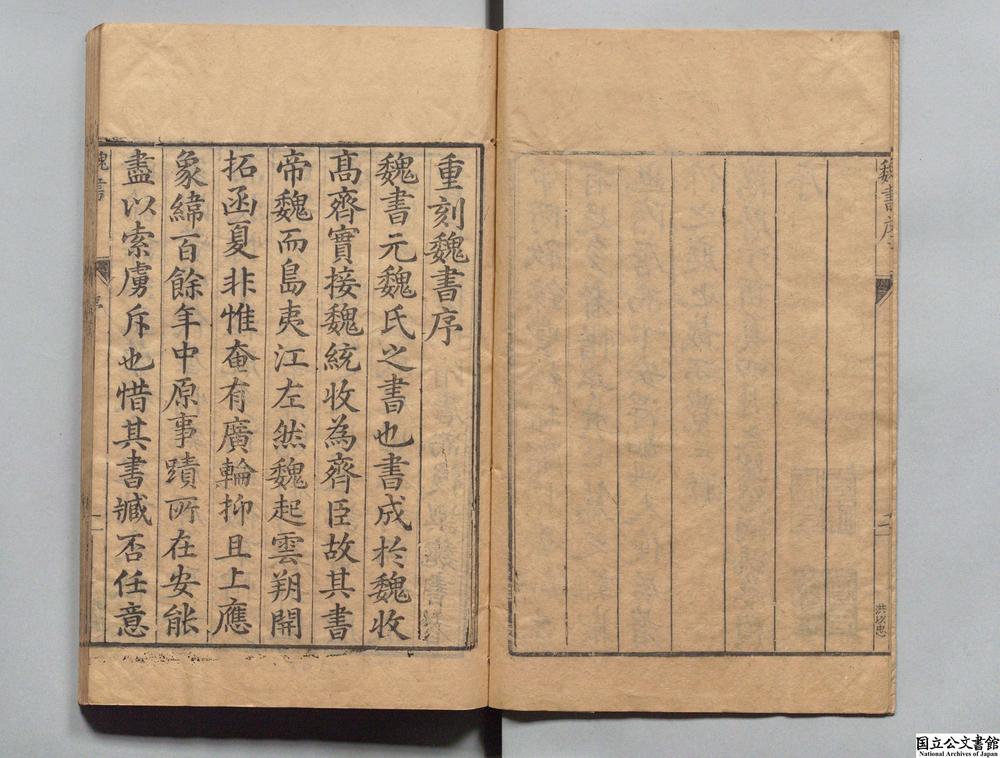 魏書序
洪以忠
重刻魏書序
魏書元魏氏之書也書成於魏收
髙齊實接魏統收為齊臣故其書
帝魏而島夷江左然魏起雲朔開
拓函夏非惟奄有廣輪抑且上應
象緯百餘年中原事蹟所在安能
盡以索虜斥也惜其書臧否任意
魏書
序
国立公文書館
National Archives of Japan